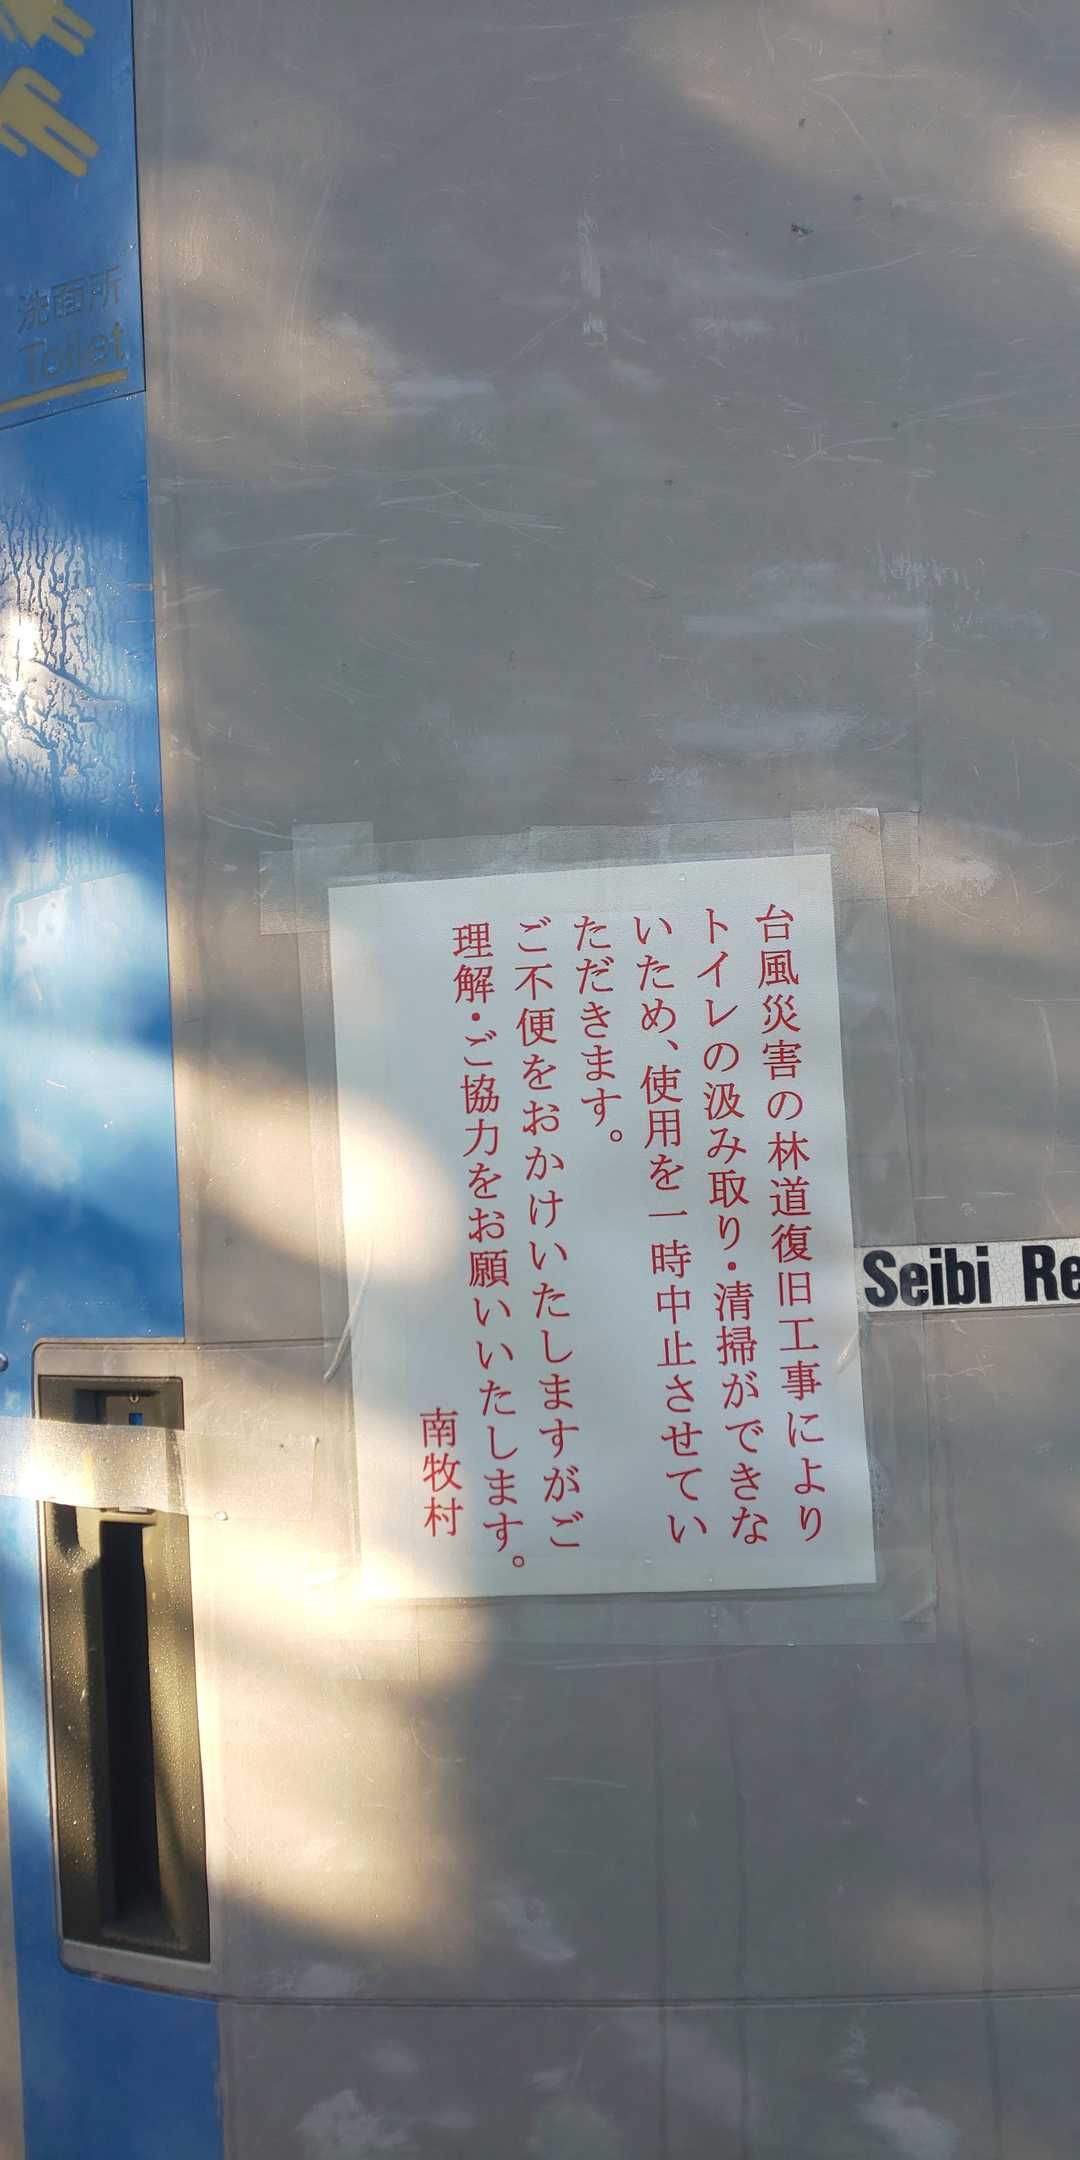 洗面所
Toilet
台風災害の林道復旧工事により
トイレの汲み取り・清掃ができな
いため、使用を一時中止させてい
ただきます。
ご不便をおかけいたしますがご
理解・ご協力をお願いいたします。
南牧村
Seibi Re